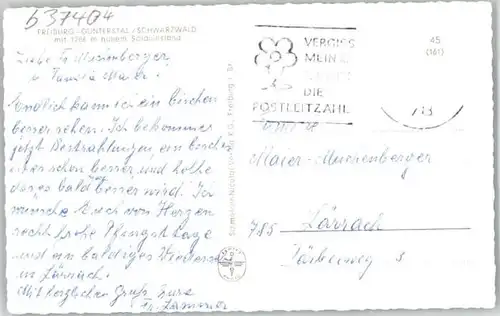 637404
FREIBURG-GÜNTERSTAL/SCHWARZWALD
mit 1284 m hohem Schauinsland
Liebe Fr Muerenberger
u. Familie Maier.
Endlich kann ich ein bischen
besser sehen. Ich bekomme
jetzt Bestrahlungen, ein bischen
ist es schon besser und hoffe
dass es bald besser wird. Ich
wünsche Euch von Herzen
recht frohe Pfingsttage
und ein baldiges Wiedersehen
in Lörrach.
Mit herzlichen Gruß Eure
Fr. Zimmer
VERGISS
MEIN
DIE
POSTLEITZAHL
45
(161)
Maier-Muerenberger
785 Lörrach
Färberweg 5